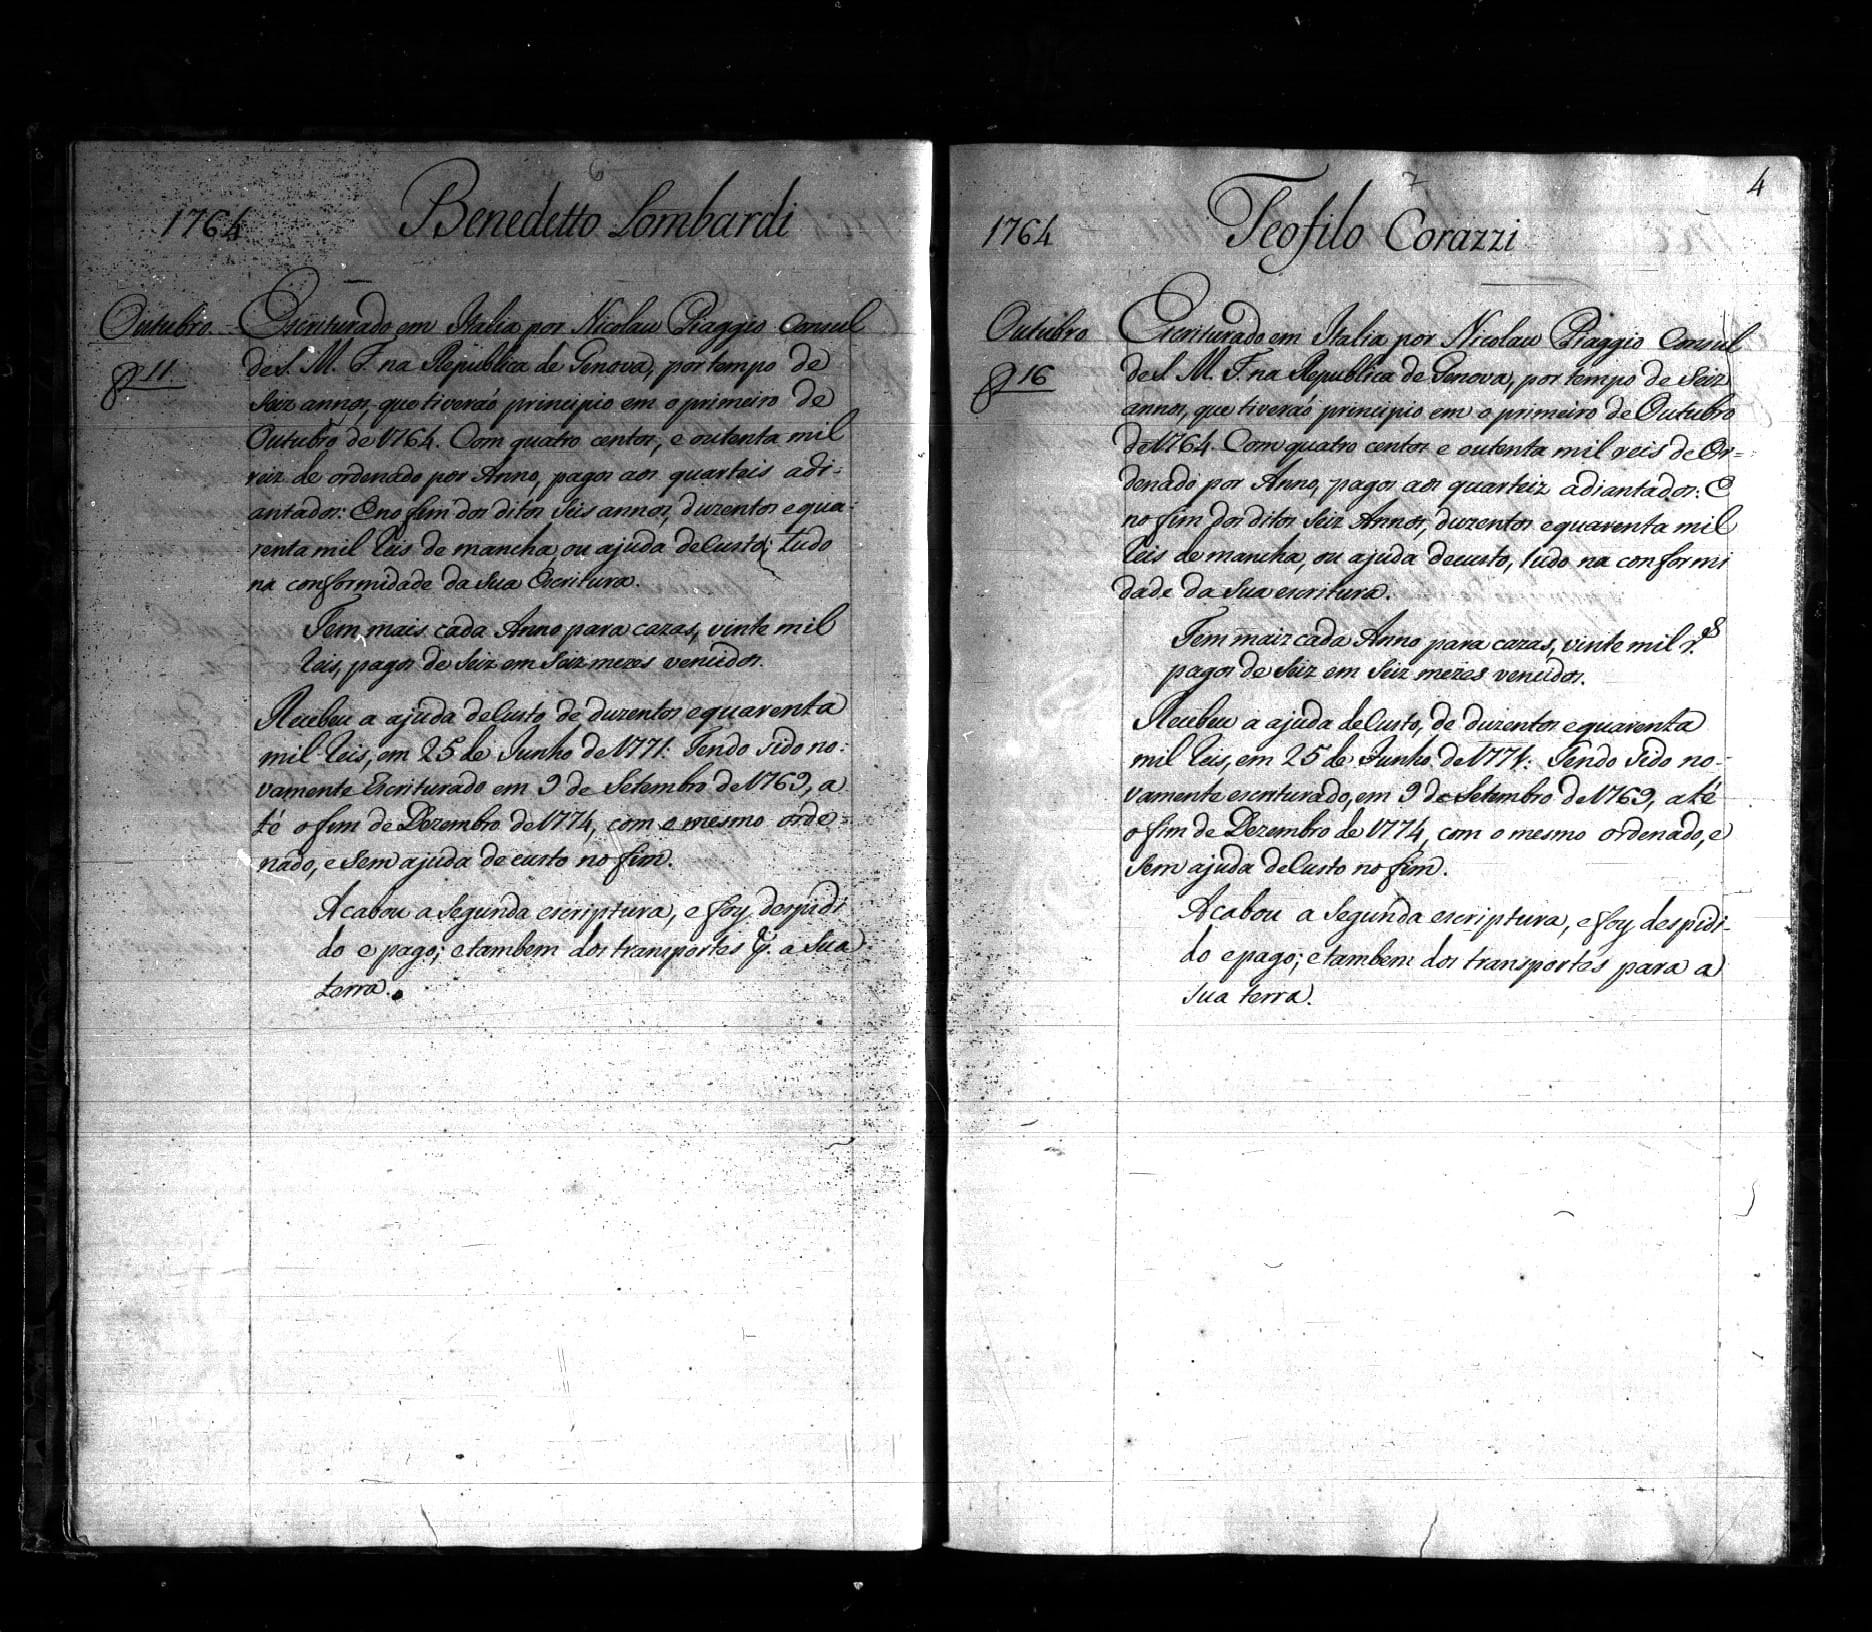 6
1764 Benedetto Lombardi
Outubro
11
Escriturado em Italia por Nicolau Piaggio Consul
de S. M. F. na Republica de Genova, por tempo de
Seiz annos, que tiveraó principio em o primeiro de
Outubro de 1764. Com quatro centos, e outenta mil
reiz de ordenado por Anno, pagos aos quarteis adi=
antados: E no fim dos ditos Seis annos, duzentos e qua=
renta mil Reis de mancha, ou ajuda de Custo; tudo
na conformidade da Sua Escritura.
Tem mais cada Anno para cazas, vinte mil
Reis, pagos de Seiz em Seiz mezes vencidos.
Recebeu a ajuda de Custo, de duzentos e quarenta
mil Reis, em 25 de Junho de 1771: Tendo sido no=
vamente Escriturado em 9 de Setembro de 1769, a
té o fim de Dezembro de 1774, com o mesmo orde=
nado, e Sem ajuda de custo no fim.
Acabou a Segunda escriptura, e foy despidi
do e pago; e tambem dos transportes p. a Sua
terra.
7
4
1764 Teofilo Corazzi
Outubro
16
Escriturado em Italia por Nicolau Piaggio Consul
de S. M. F. na Republica de Genova, por tempo de Seiz
annos, que tiveraó principio em o primeiro de Outubro
de 1764. Com quatro centos e outenta mil reis de Or=
denado por Anno, pagos aos quarteiz adiantados: E
no fim dos ditos Seiz Annos, duzentos e quarenta mil
Reis de mancha, ou ajuda de custo, tudo na conformi
dade da Sua escritura.
Tem maiz cada Anno para cazas, vinte mil r.s
pagos de Seiz em Seiz mezes vencidos.
Recebeu a ajuda de Custo, de duzentos e quarenta
mil Reis, em 25 de Junho de 1771: Tendo Sido no=
vamente escriturado, em 9 de Setembro de 1769, até
o fim de Dezembro de 1774, com o mesmo ordenado, e
Sem ajuda de Custo no fim.
Acabou a Segunda escriptura, e foy despidi=
do e pago; e tambem dos transportes para a
Sua terra.